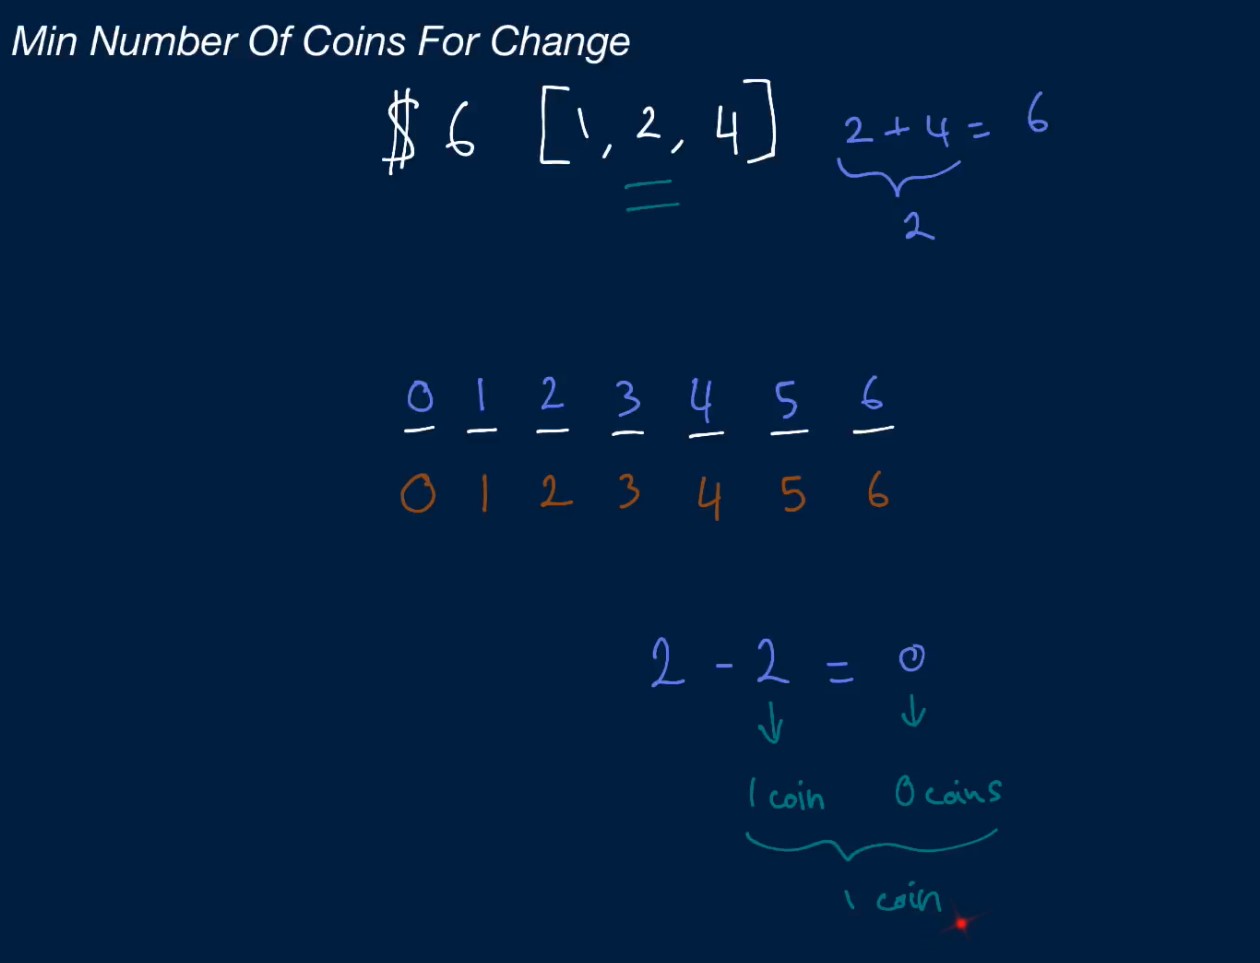 Min Number Of Coins For Change
$ 6 [1, 2, 4] 2 + 4 = 6
2
0 1 2 3 4 5 6
0 1 2 3 4 5 6
2 - 2 = 0
1 coin 0 coins
1 coin